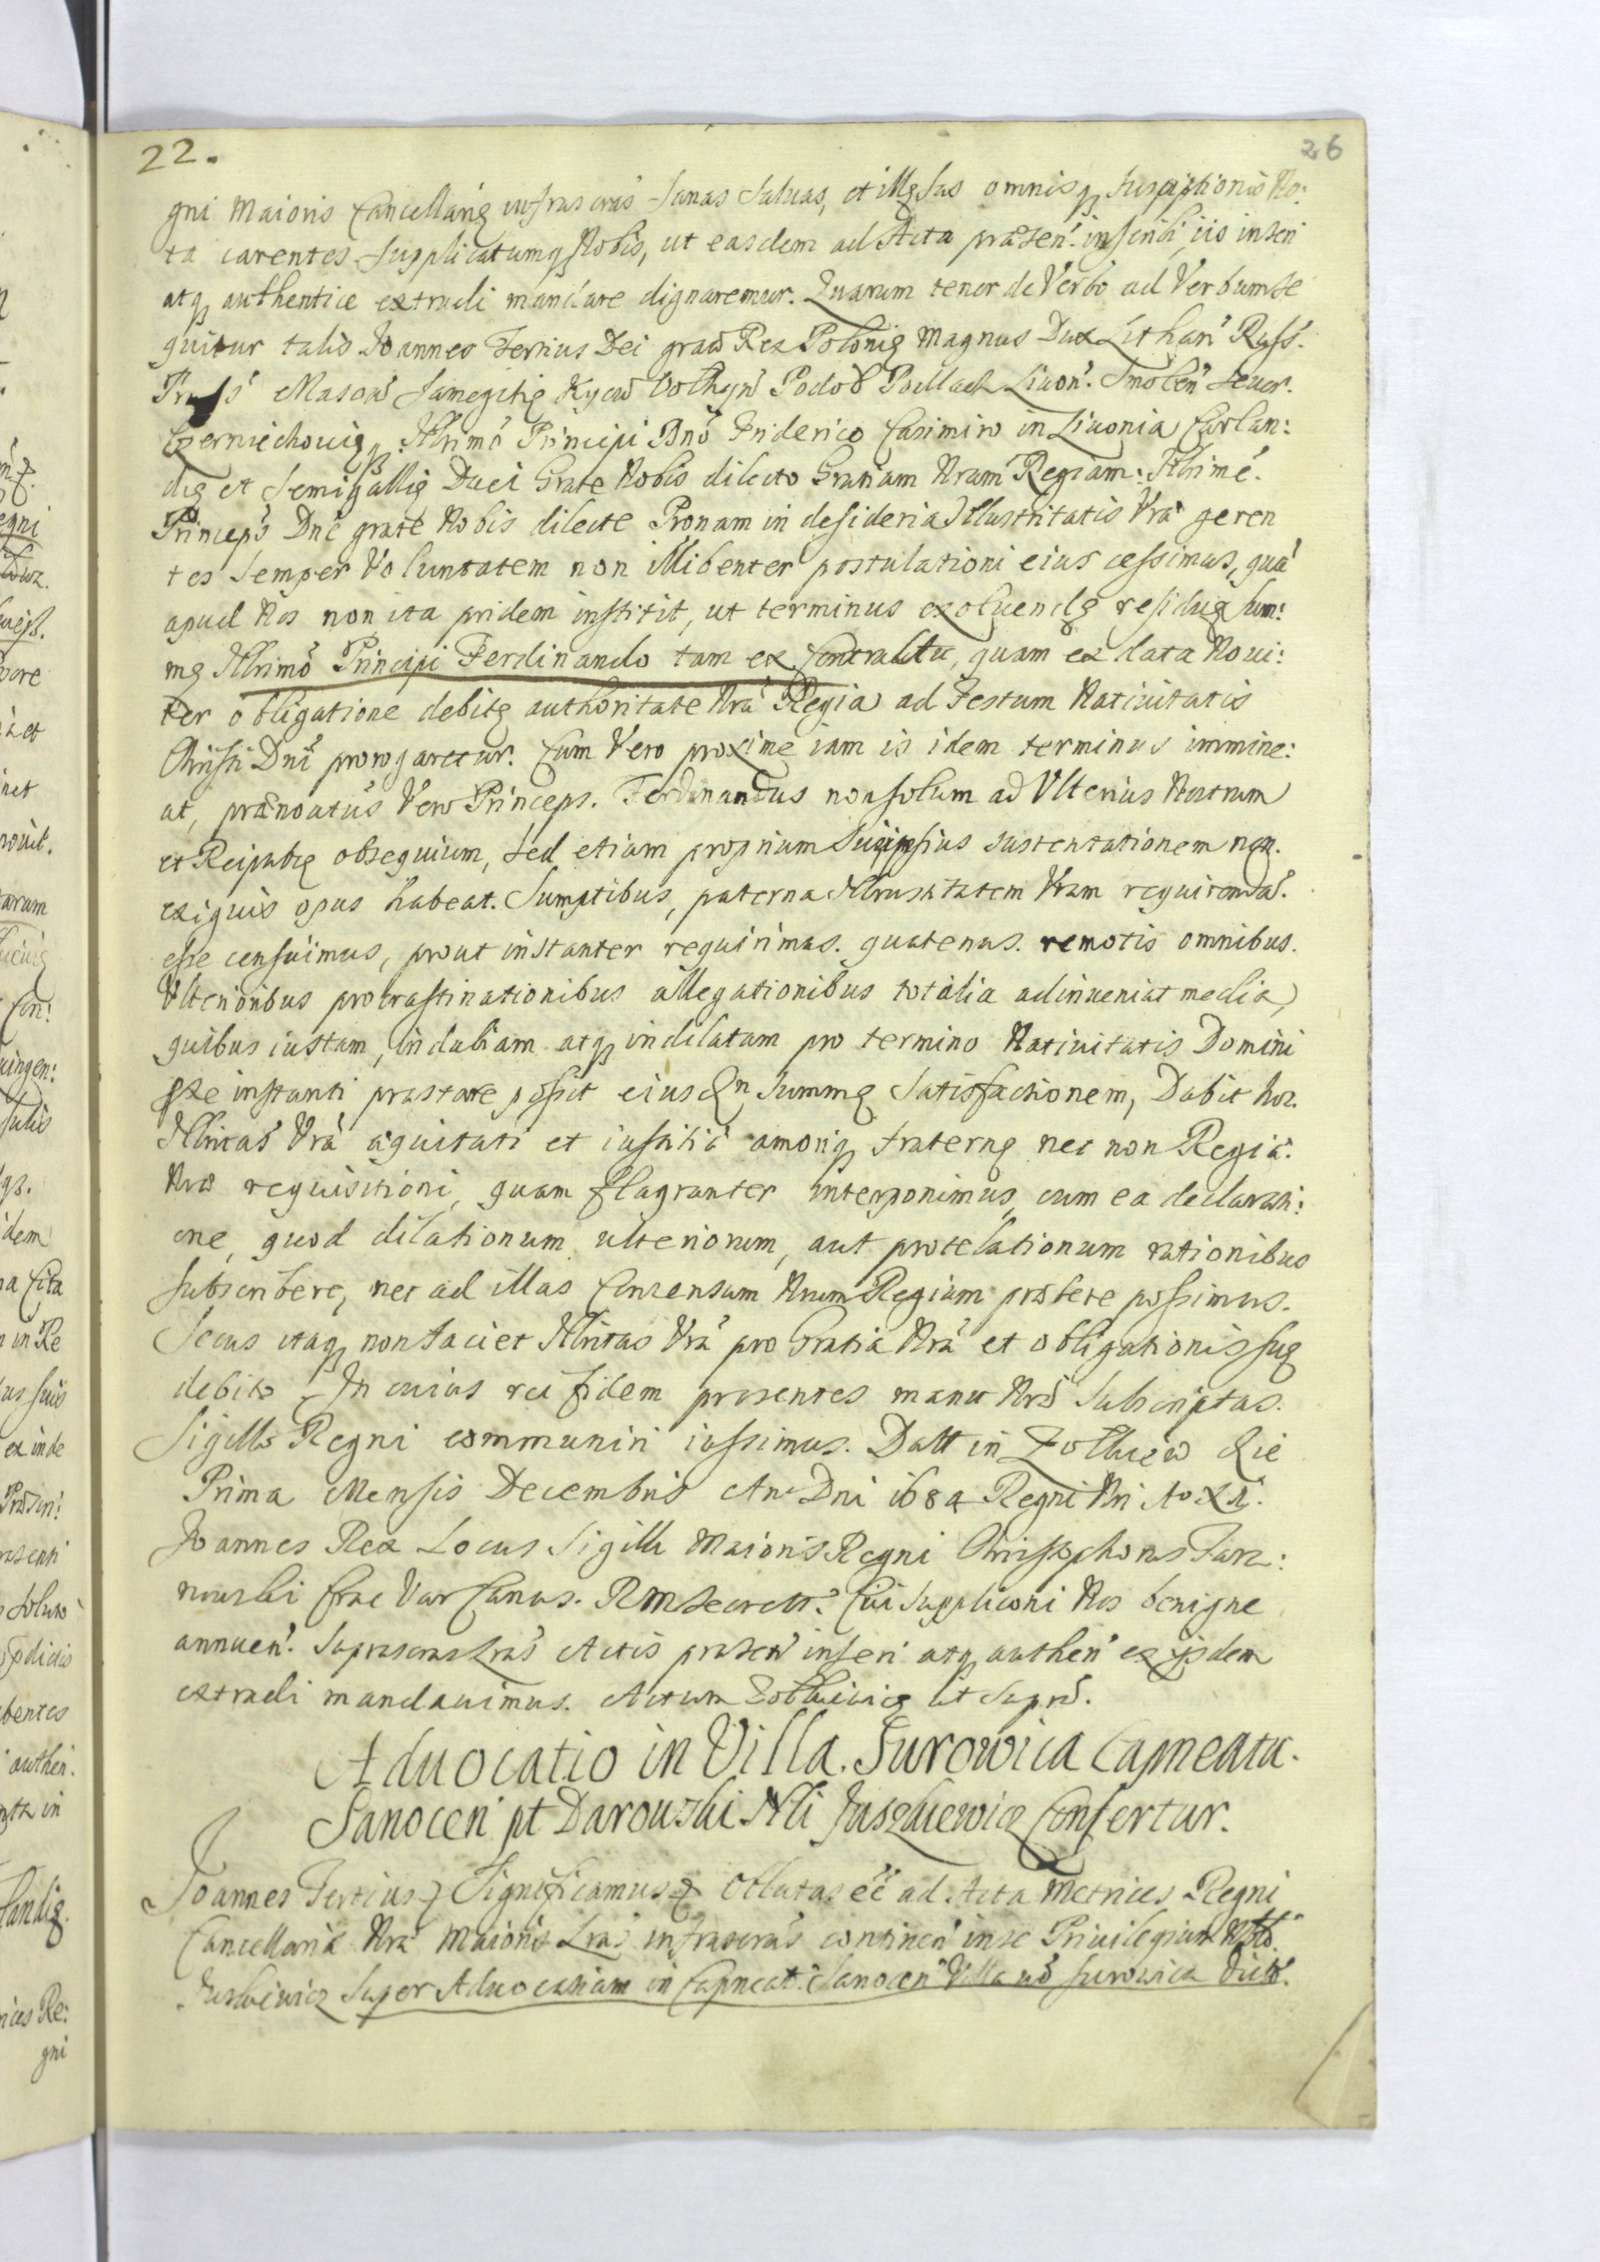 22.
26
gni Maioris Cancellariæ infrascras Sanas Saluas, et illæsas omnisq Suspitionis No:
ta carentes Supplicatumq Nobis, ut easdem ad Acta præsen: inscribi, iis inseri
atq authentice extradi mandare dignaremur. Quarum tenor de Verbo ad Verbum se
quitur talis Joannes Tertius Dei graa Rex Poloniæ Magnus Dux Lithan Russ.
Pruss Masow Samogitiæ Kyow Volhyn Podol Podlach Liuon. Smolen Seuer.
Czerniechouiæq. Illrimo Principi Dno Friderico Casimiro in Liuonia Curlan:
diæ et Semigalliæ Duci Grate Nobis dilecto Gratiam Nram Regiam: Illrime.
Princeps Dne grate Nobis dilecte Pronam in desideria Illustritatis Vra geren
tes Semper Voluntatem non illibenter postulationi eius cessimus, qua
apud Nos non ita pridem institit, ut terminus exoluendæ residuæ Sum:
mæ Illrimo Principi Ferdinando tam ex Contractu, quam ex data Noui:
ter obligatione debitæ authoritate Nra Regia ad Festum Natiuitatis
Christi Dni prorogaretur. Cum Vero proxime iam is idem terminus immine:
at, prænoatus Vero Princeps. Ferdinandus non solum ad Vlterius Nostrum
et Reipubæ obsequium, sed etiam proprium Suiipsius sustentationem non.
exiguis opus habeat. Sumptibus, paterna Illrustatem Vram requirenda.
esse censuimus, prout instanter requirimus. quatenus. remotis omnibus.
Vlterioribus procrastinationibus allegationibus totalia adinueniat media,
quibus iustam, indubiam atq indilatam pro termino Natiuitatis Domini
pxe instanti præstare possit eiusdn Summæ Satisfactionem, Dabit hoc.
Illritas Vra æquitati et iustitiæ amoriq fraternæ nec non Regiæ.
Nræ requisitioni, quam flagranter interponimus, cum ea declarati:
one, quod dilationum ulteriorum, aut protelationum rationibus
subscribere, nec ad illas Consensum Nrum Regium præbere possimus.
Secus itaq non faciet Illritas Vra pro Gratia Nra et obligationis suæ
debito. In cuius rei fidem præsentes manu Nra Subscriptas.
Sigillo Regni communiri iussimus. Datt in Zolkiew die
Prima Mensis Decembris Ano Dni 1684 Regni Nri Ao XI.
Joannes Rex Locus Sigilli Maioris Regni Christophorus Tarz:
nowski Crac Var Canus. RM Secrett. Cui Suppliconi Nos benigne
annuen. Suprascras Lras Actis præsen inseri atq authen ex iisdem
extradi mandauimus. Actum Zolkieuiæ ut Supra.
Aduocatio in Villa. Surowica Capneatu.
Sanocen pt Darowski Nli Juszkiewicz Confertur.
Joannes Tertius Significamus Oblatas ee ad Acta Metrices Regni
Cancellariæ Nra Maioris Lras infrascras continen in se Priuilegium Nbto
Juszkiewicz Super Aduocatiam in Capneat: Sanocen Villa Surowica